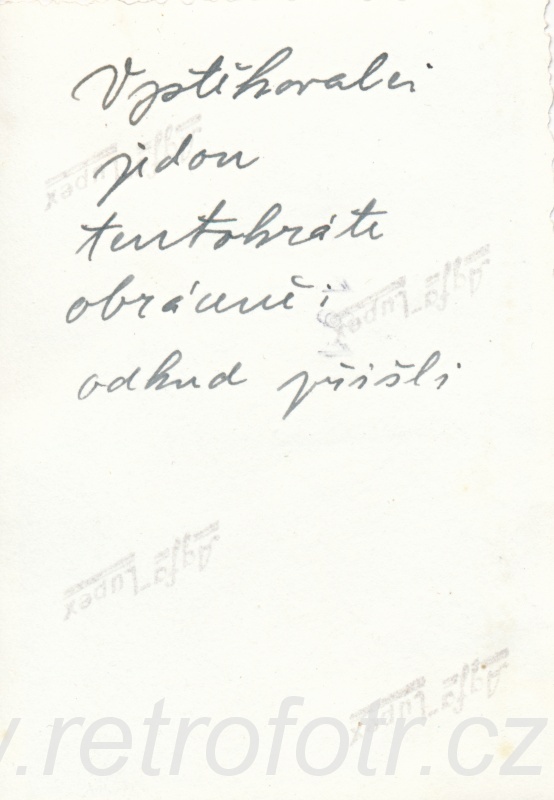 Vystěhovalci
jedou
tentokráte
obráceně:
odkud přišli
Agfa Lupex
Agfa Lupex
Agfa Lupex
Agfa Lupex
.retrofotr.cz